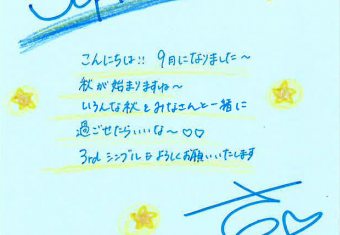 こんにちは!! 9月になりました〜
秋が始まりますね〜
いろんな秋をみなさんと一緒に
過ごせたらいいな〜♡♡
3rdシングルもよろしくお願いいたします